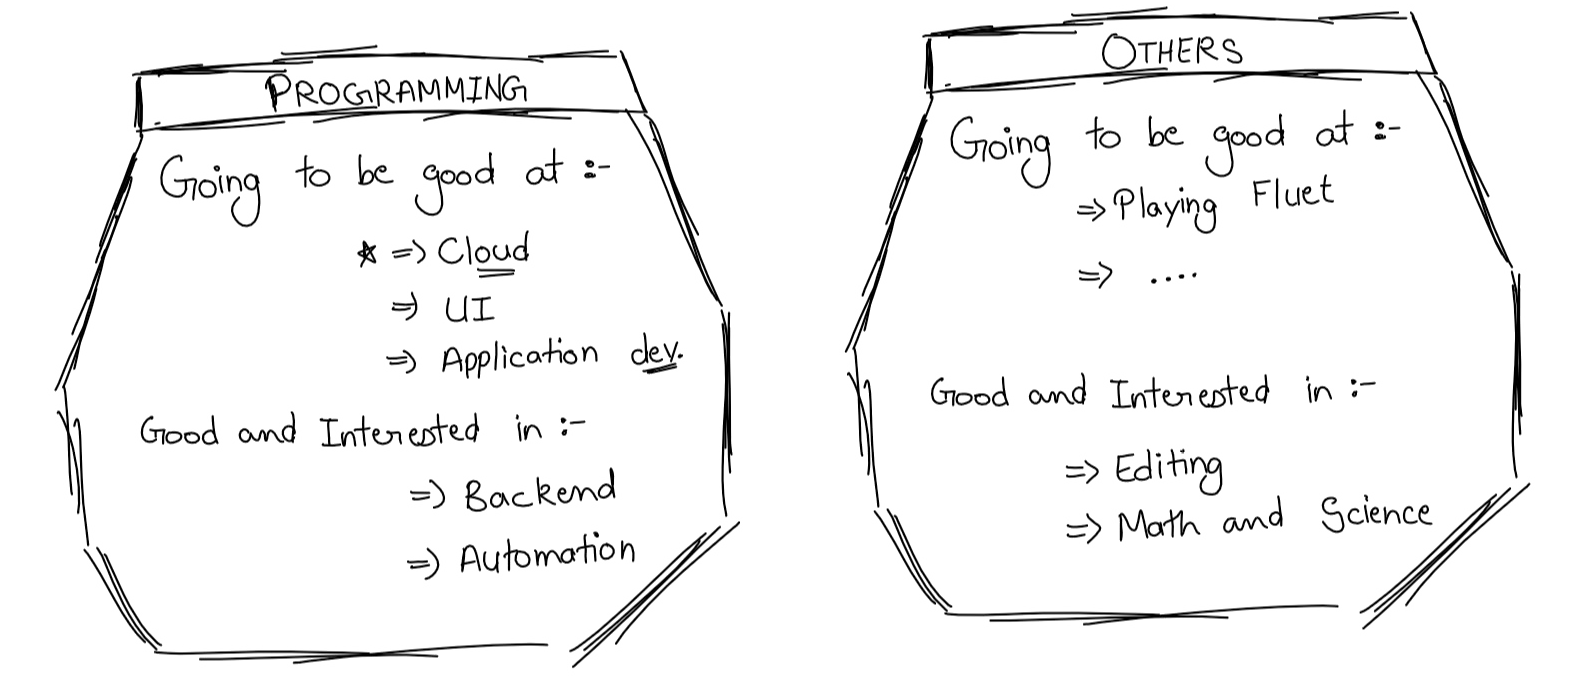 PROGRAMMING
Going to be good at :-
* => Cloud
=> UI
=> Application dev.
Good and Interested in :-
=> Backend
=> Automation
OTHERS
Going to be good at :-
=> Playing Fluet
=> ....
Good and Interested in :-
=> Editing
=> Math and Science